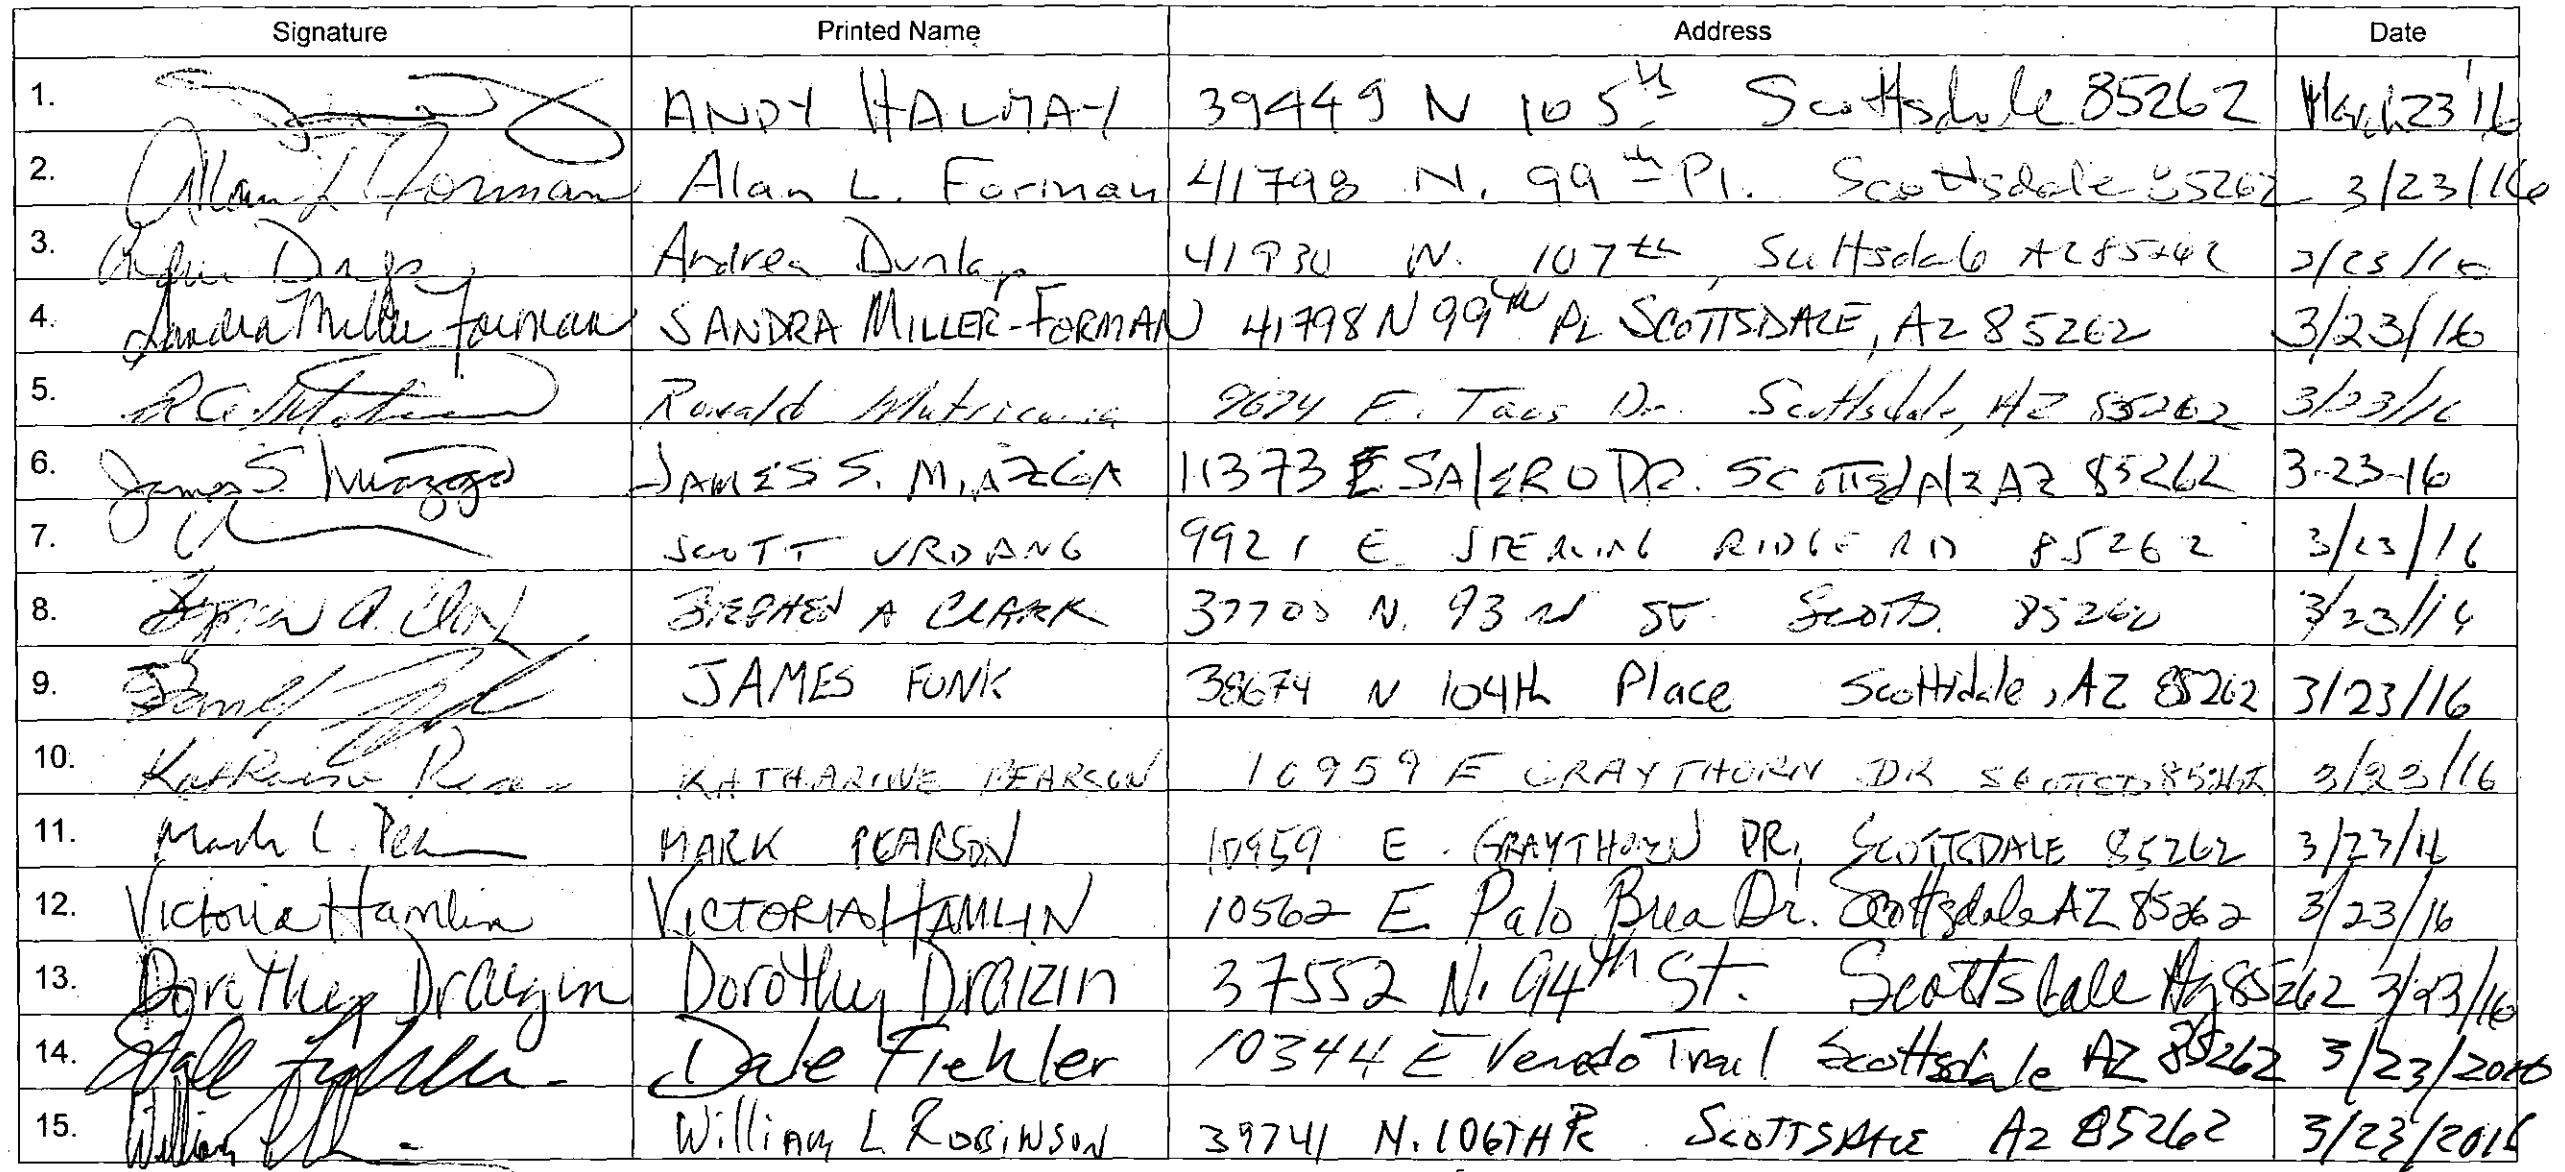 Signature Printed Name Address Date
1. ANDY HALMAY 39449 N 105th Scottsdale 85262 March 23 '16
2. Alan L Forman Alan L. Forman 41798 N. 99th Pl. Scottsdale 85262 3/23/16
3. Andrea Dunlap 41930 N. 107th, Scottsdale AZ 85262 3/23/16
4. Sandra Miller Forman SANDRA MILLER-FORMAN 41798 N 99TH PL SCOTTSDALE, AZ 85262 3/23/16
5. Ronald Matricaria 9674 E. Taos Dr. Scottsdale, AZ 85262 3/23/16
6. James S. Miazga JAMES S. MIAZGA 11373 E SALERO DR. SCOTTSdAlE AZ 85262 3-23-16
7. SCOTT URDANG 9921 E STERLING RIDGE RD 85262 3/23/16
8. Stephen A. Clark STEPHEN A CLARK 37705 N. 93rd ST. SCOTTS. 85262 3/23/16
9. JAMES FUNK 38674 N 104th Place Scottsdale, AZ 85262 3/23/16
10. Katharine Pearson KATHARINE PEARSON 10959 E GRAYTHORN DR SCOTTSD 85262 3/23/16
11. Mark L. MARK PEARSON 10959 E. GRAYTHORN DR, SCOTTSDALE 85262 3/23/16
12. Victoria Hamlin VICTORIA HAMLIN 10562 E. Palo Brea Dr. Scottsdale AZ 85262 3/23/16
13. Dorothy Draizin Dorothy Draizin 37552 N. 94th St. Scottsdale Az 85262 3/23/16
14. Dale Fiehler Dale Fiehler 10344 E Venado Trail Scottsdale AZ 85262 3/23/2016
15. William William L Robinson 39741 N. 106TH PL SCOTTSDALE AZ 85262 3/23/2016